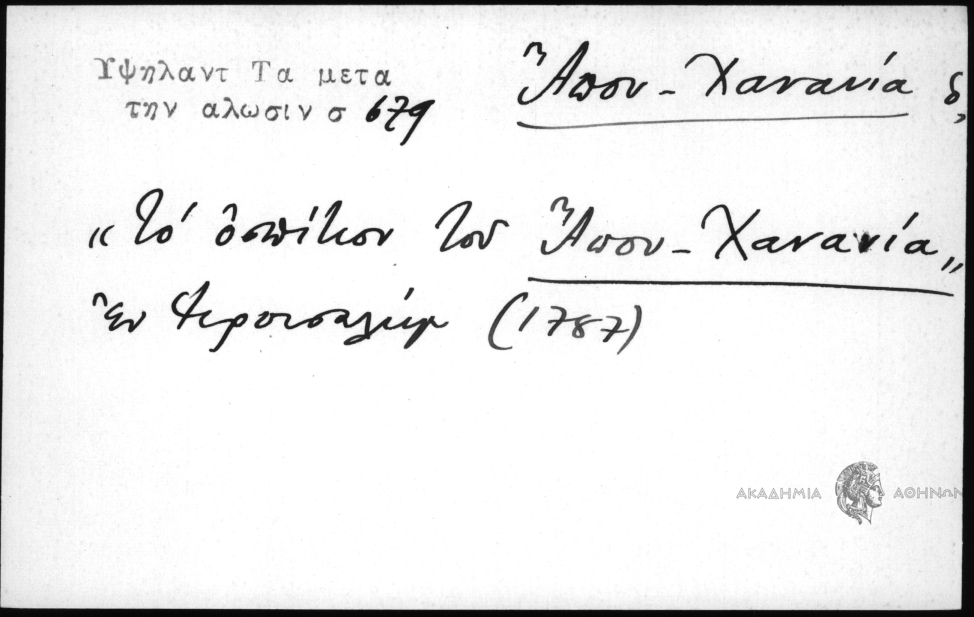 Υψηλαντ Τα μετα
την αλωσιν σ 679
Ἄπου - Χανανία
« Τὸ ὁσπίτιον τοῦ Ἄπου - Χανανία „
Ἐν Ἱερουσαλήμ (1787)
ΑΚΑΔΗΜΙΑ ΑΘΗΝΩΝ